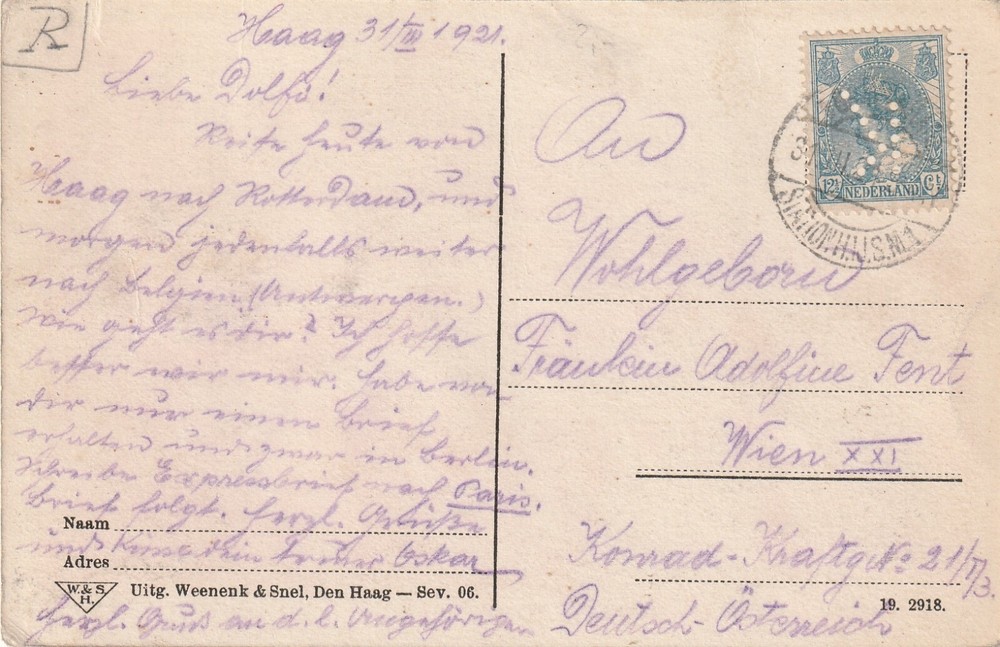 R
Haag 31/III 1921.
Liebe Dolfi!
Reise heute von
Haag nach Rotterdam, und
morgen jedenfalls weiter
nach Belgien (Antwerpen.)
wie geht es dir? Ich hoffe
besser wir mir. habe von
dir nur einen Brief
erhalten und zwar in Berlin.
Schreibe Expressbrief nach Paris.
Brief folgt. herzl. Grüße
und Küsse dein treuer Oskar
herzl. Gruß an d. l. Angehörigen
Naam
Adres
W. & S.
H.
Uitg. Weenenk & Snel, Den Haag — Sev. 06.
An
Wohlgeborn
Fräulein Adolfine Fent
Wien XXI
Konrad-Kraftg No 21/II/3.
Deutsch-Österreich
19. 2918.
12½ NEDERLAND Ct
STATION H.IJ.S.M. 1